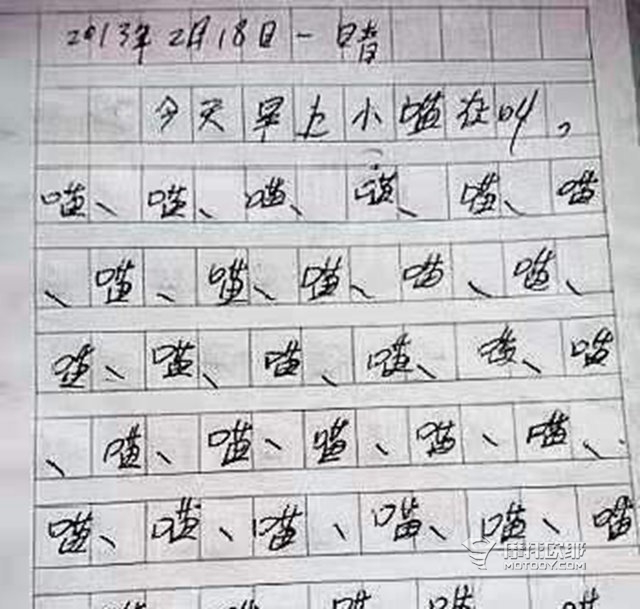 2013年2月18日一 晴
今天早上小喵在叫。
喵、喵、喵、喵、喵、喵
、喵、喵、喵、喵、喵、
喵、喵、喵、喵、喵、喵
、喵、喵、喵、喵、喵、
喵、喵、喵、喵、喵、喵
摩托欧耶
MOTOOY.COM